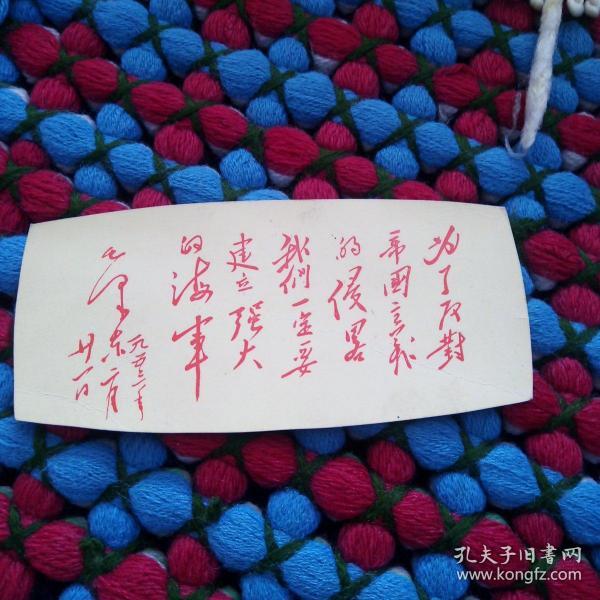 为了反對
帝國主義
的侵畧
我們一定要
建立强大
的海軍
毛泽东
一九五三年
二月
廿一日
孔夫子旧书网
www.kongfz.com